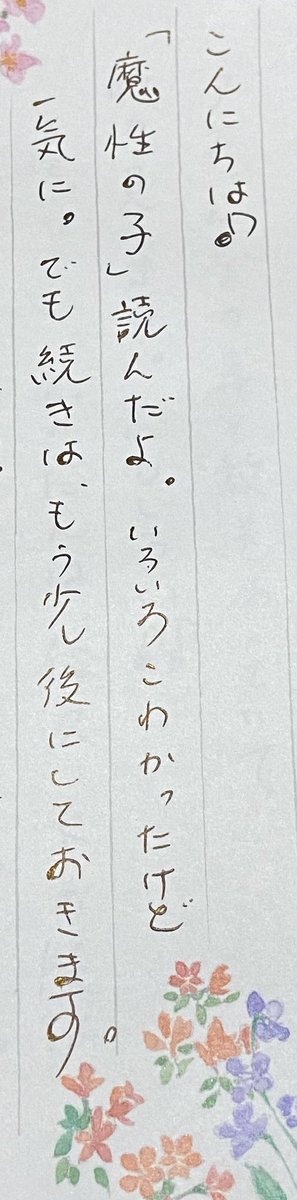 こんにちは!?
「魔性の子」読んだよ。いろいろこわかったけど
一気に。でも続きは、もう少し後にしておきます。